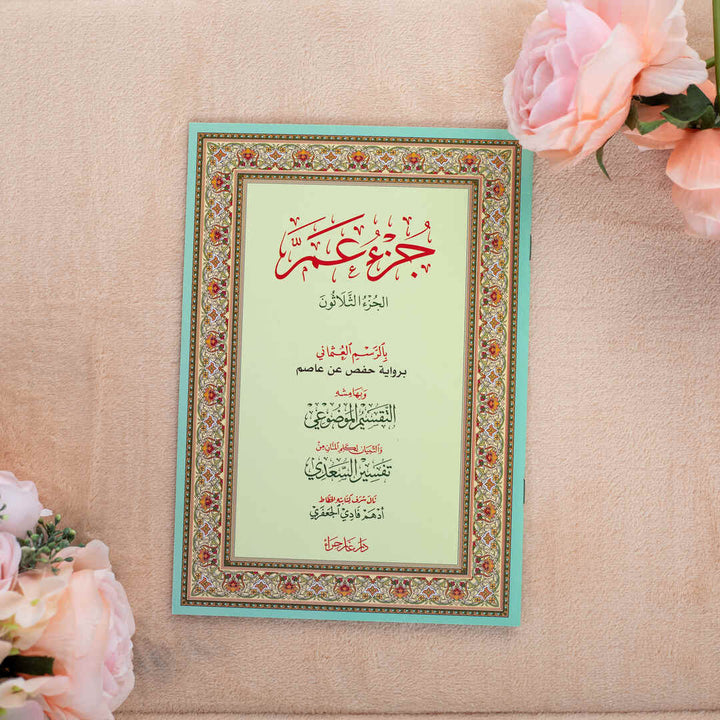 جُزْءُ عَمَّ
الجُزْءُ الثَّلَاثُونَ
بِالرَّسْمِ العُثْمَانِي
برواية حفص عن عاصم
وَبِهَامِشِهِ
التَّقْسِيمُ المَوْضُوعِيُّ
وَالتِّبْيَانُ لِكَلِمِ المَنَّانِ مِنْ
تَفْسِيرِ السَّعْدِي
نَالَ شَرَفَ كِتَابَتِهِ الخَطَّاطُ
أَدْهَمْ فَادِي الجَعْفَرِي
دار غار حراء